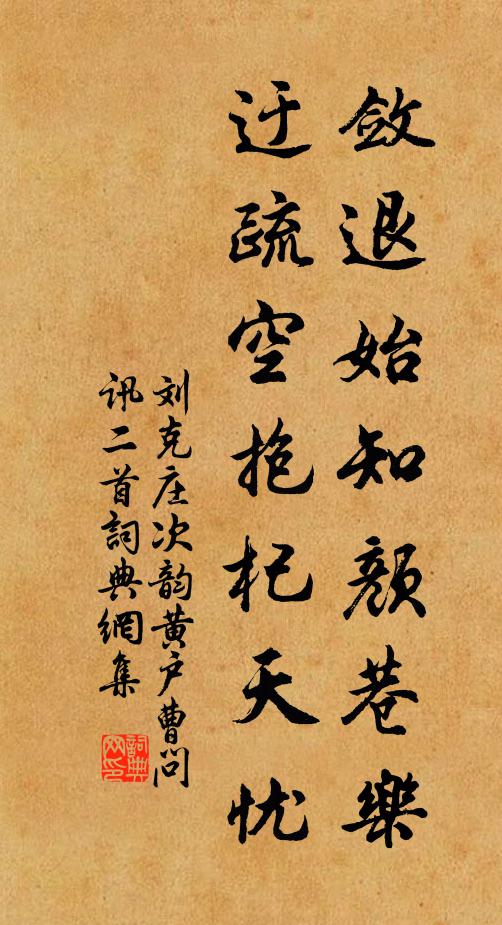 斂退始知顔巷樂
迂疏空抱杞天忧
刘克庄次韵黄户曹問
讯二首詞典網集
詞典
网印